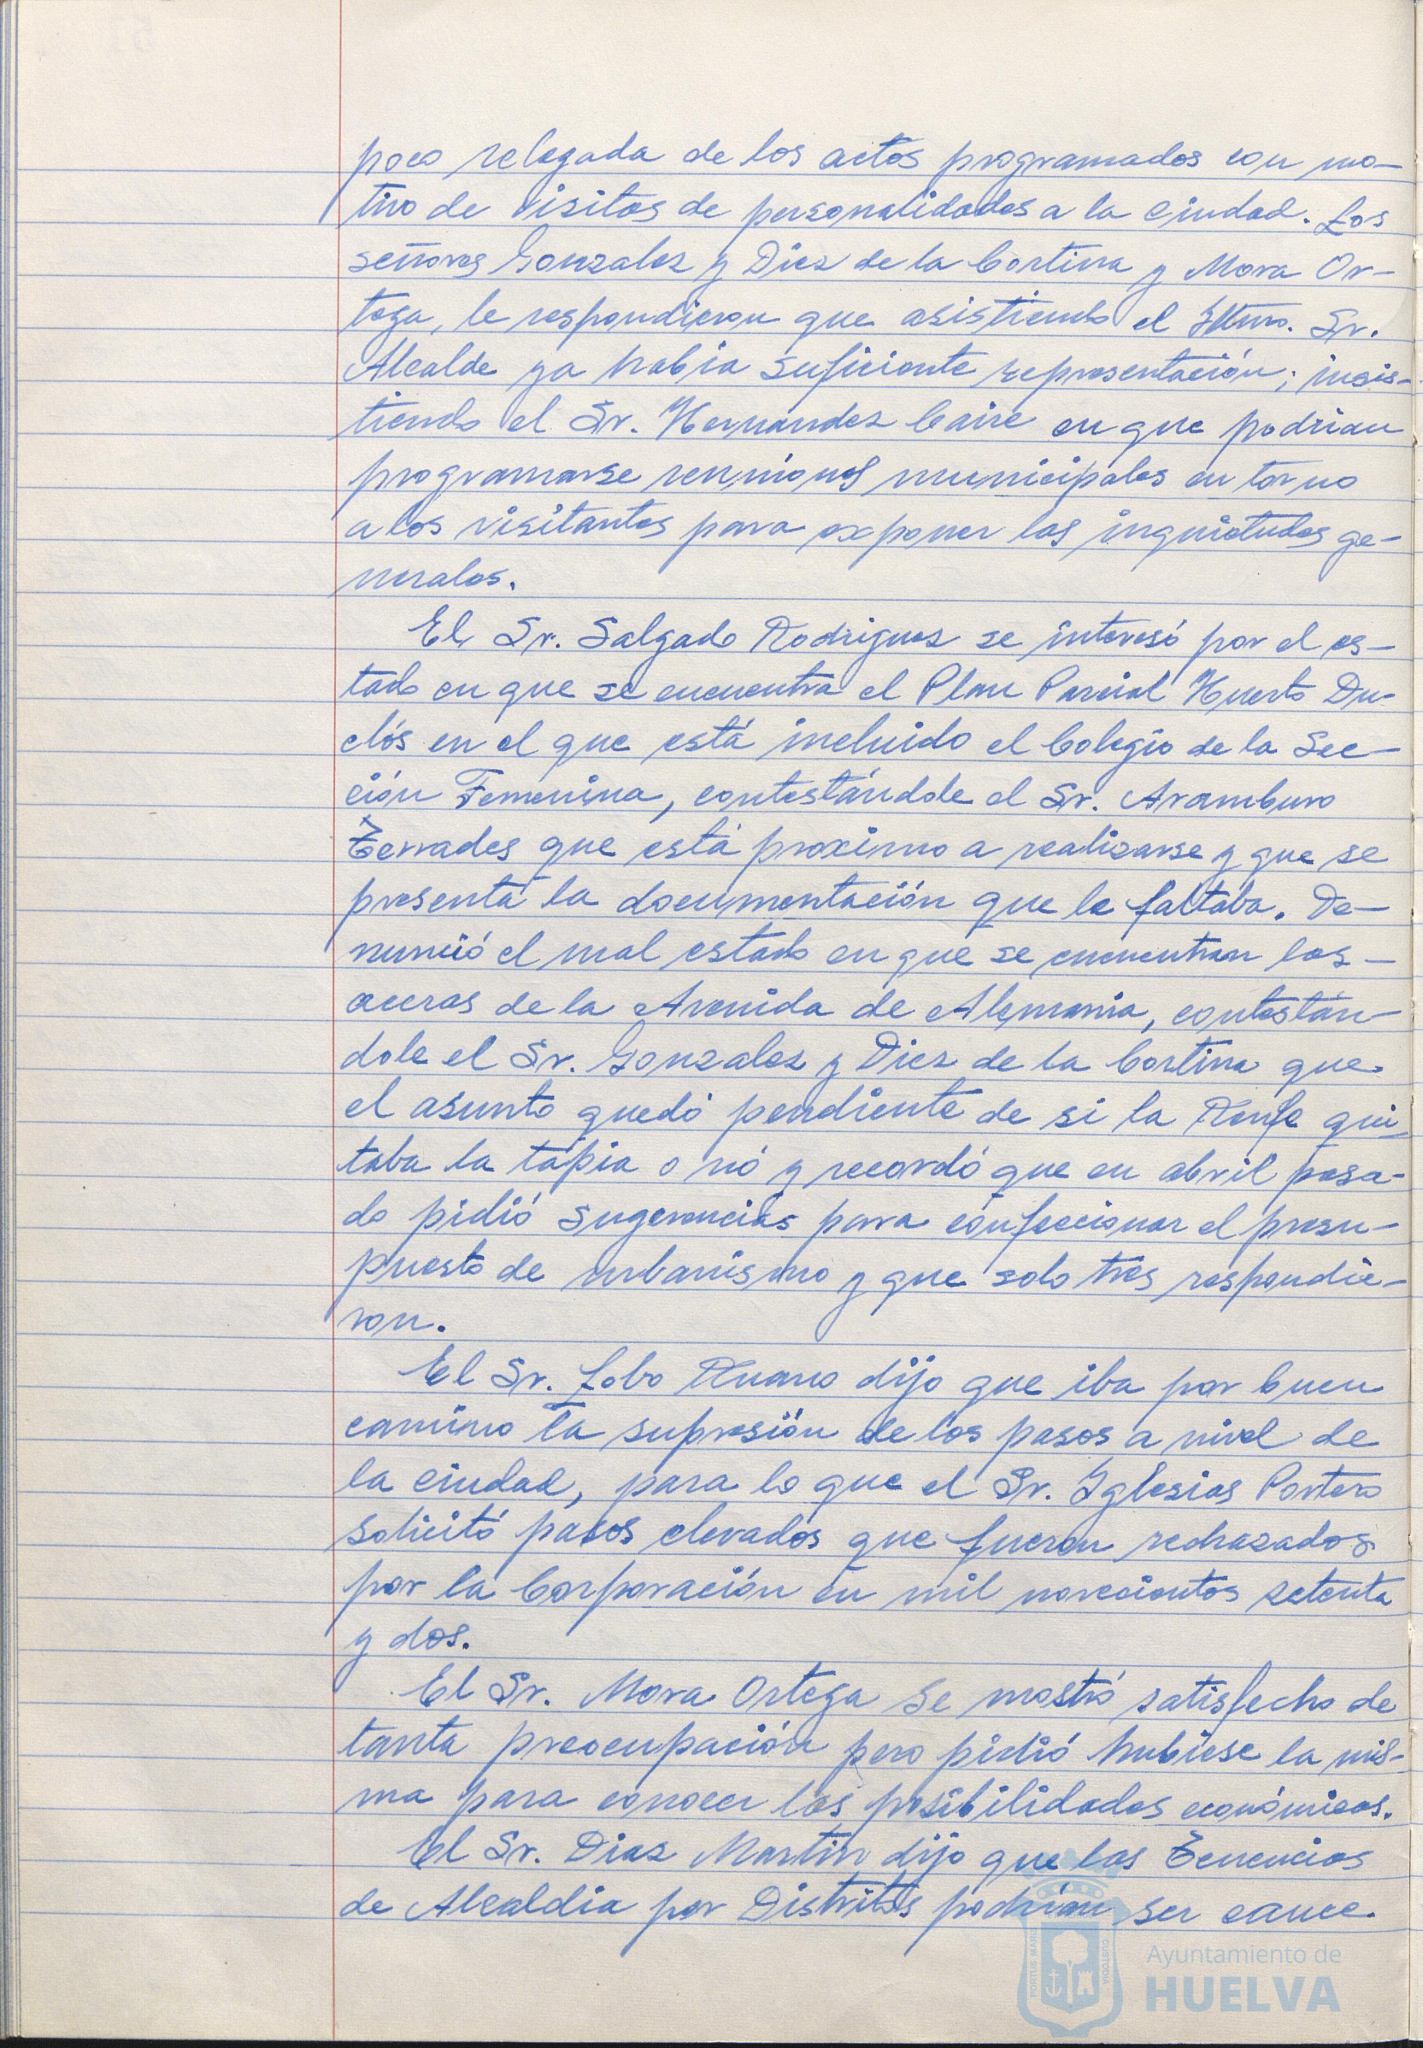 poco relegada de los actos programados con mo-
tivo de visitas de personalidades a la ciudad. Los
señores Gonzalez y Diez de la Cortina y Mora Or-
tega, le respondieron que asistiendo el Iltmo. Sr.
Alcalde ya había suficiente representación; insis-
tiendo el Sr. Hernandez Caire en que podrian
programarse reuniones municipales en torno
a los visitantes para exponer las inquietudes ge-
nerales.
El Sr. Salgado Rodriguez se interesó por el es-
tado en que se encuentra el Plan Parcial Huerto Du-
clós en el que está incluido el Colegio de la Sec-
ción Femenina, contestándole el Sr. Aramburo
Terrades que está proximo a realizarse y que se
presentá la documentación que le faltaba. De-
nunció el mal estado en que se encuentran las -
aceras de la Avenida de Alemania, contestán-
dole el Sr. Gonzalez y Diez de la Cortina que
el asunto quedó pendiente de si la Renfe qui-
taba la tápia o nó y recordó que en abril pasa-
do pidió sugerencias para confeccionar el presu-
puesto de urbanismo y que solo tres respondie-
ron.
El Sr. Lobo Ruano dijo que iba por buen
camino la supresión de los pasos a nivel de
la ciudad, para lo que el Sr. Iglesias Portero
solicitó pasos elevados que fueron rechazados
por la Corporación en mil novecientos setenta
y dos.
El Sr. Mora Ortega se mostró satisfecho de
tanta preocupación pero pidió hubiese la mis-
ma para conocer las posibilidades económicas.
El Sr. Diaz Martin dijo que las Tenencias
de Alcaldía por Distritos podrían ser cauce.
PORTUS MARIS
CUSTODIA
Ayuntamiento de
HUELVA